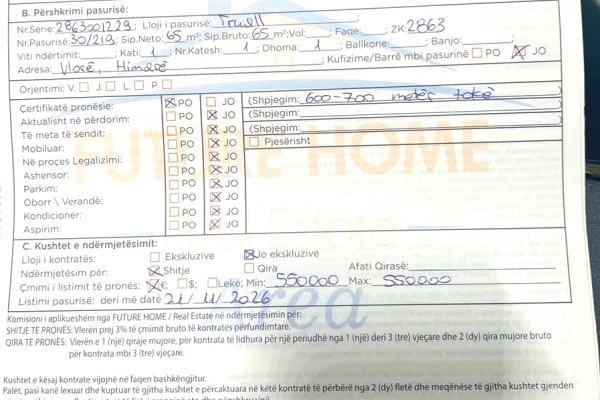 B. Përshkrimi pasurisë:
Nr.Serie: 2863001229; Lloji i pasurisë: Truell
Nr.Pasurisë: 30/219; Sip.Neto: 65 m²; Sip.Bruto: 65 m²; Vol: ; Faqe: ; ZK: 2863
Viti ndërtimit: ; Kati: 1; Nr.Katesh: 1; Dhoma: 1; Ballkone: ; Banjo: ;
Adresa: Vlorë, Himarë ; Kufizime/Barrë mbi pasurinë PO JO
Orjentimi: V. J. L. P.
Çertifikatë pronësie: PO JO (Shpjegim: 600-700 metër tokë )
Aktualisht në përdorim: PO JO (Shpjegim: )
Të meta të sendit: PO JO (Shpjegim: )
Mobiluar: PO JO Pjesërisht
Në proçes Legalizimi: PO JO
Ashensor: PO JO
Parkim: PO JO
Oborr \ Verandë: PO JO
Kondicioner: PO JO
Aspirim: PO JO
FUTURE HOME
C. Kushtet e ndërmjetësimit:
Lloji i kontratës: Ekskluzive Jo ekskluzive
Ndërmjetësim për: Shitje Qira Afati Qirasë:
Çmimi i listimit të pronës: €; $; Lekë; Min: 550000 Max: 550000
Listimi pasurisë: deri më datë 21/11/2026
Komisioni i aplikueshëm nga FUTURE HOME / Real Estate në ndërmjetësimin për:
SHITJE TË PRONËS: Vlerën prej 3% të çmimit bruto të kontratës përfundimtare.
QIRA TË PRONËS: Vlerën e 1 (një) qiraje mujore, për kontrata të lidhura për një periudhë nga 1 (një) deri 3 (tre) vjeçare dhe 2 (dy) qira mujore bruto
për kontrata mbi 3 (tre) vjeçare.
Kushtet e kësaj kontrate vijojnë në faqen bashkëngjitur.
Palët, pasi kanë lexuar dhe kuptuar të gjitha kushtet e përcaktuara në këtë kontratë të përbërë nga 2 (dy) fletë dhe meqënëse të gjitha kushtet gjenden